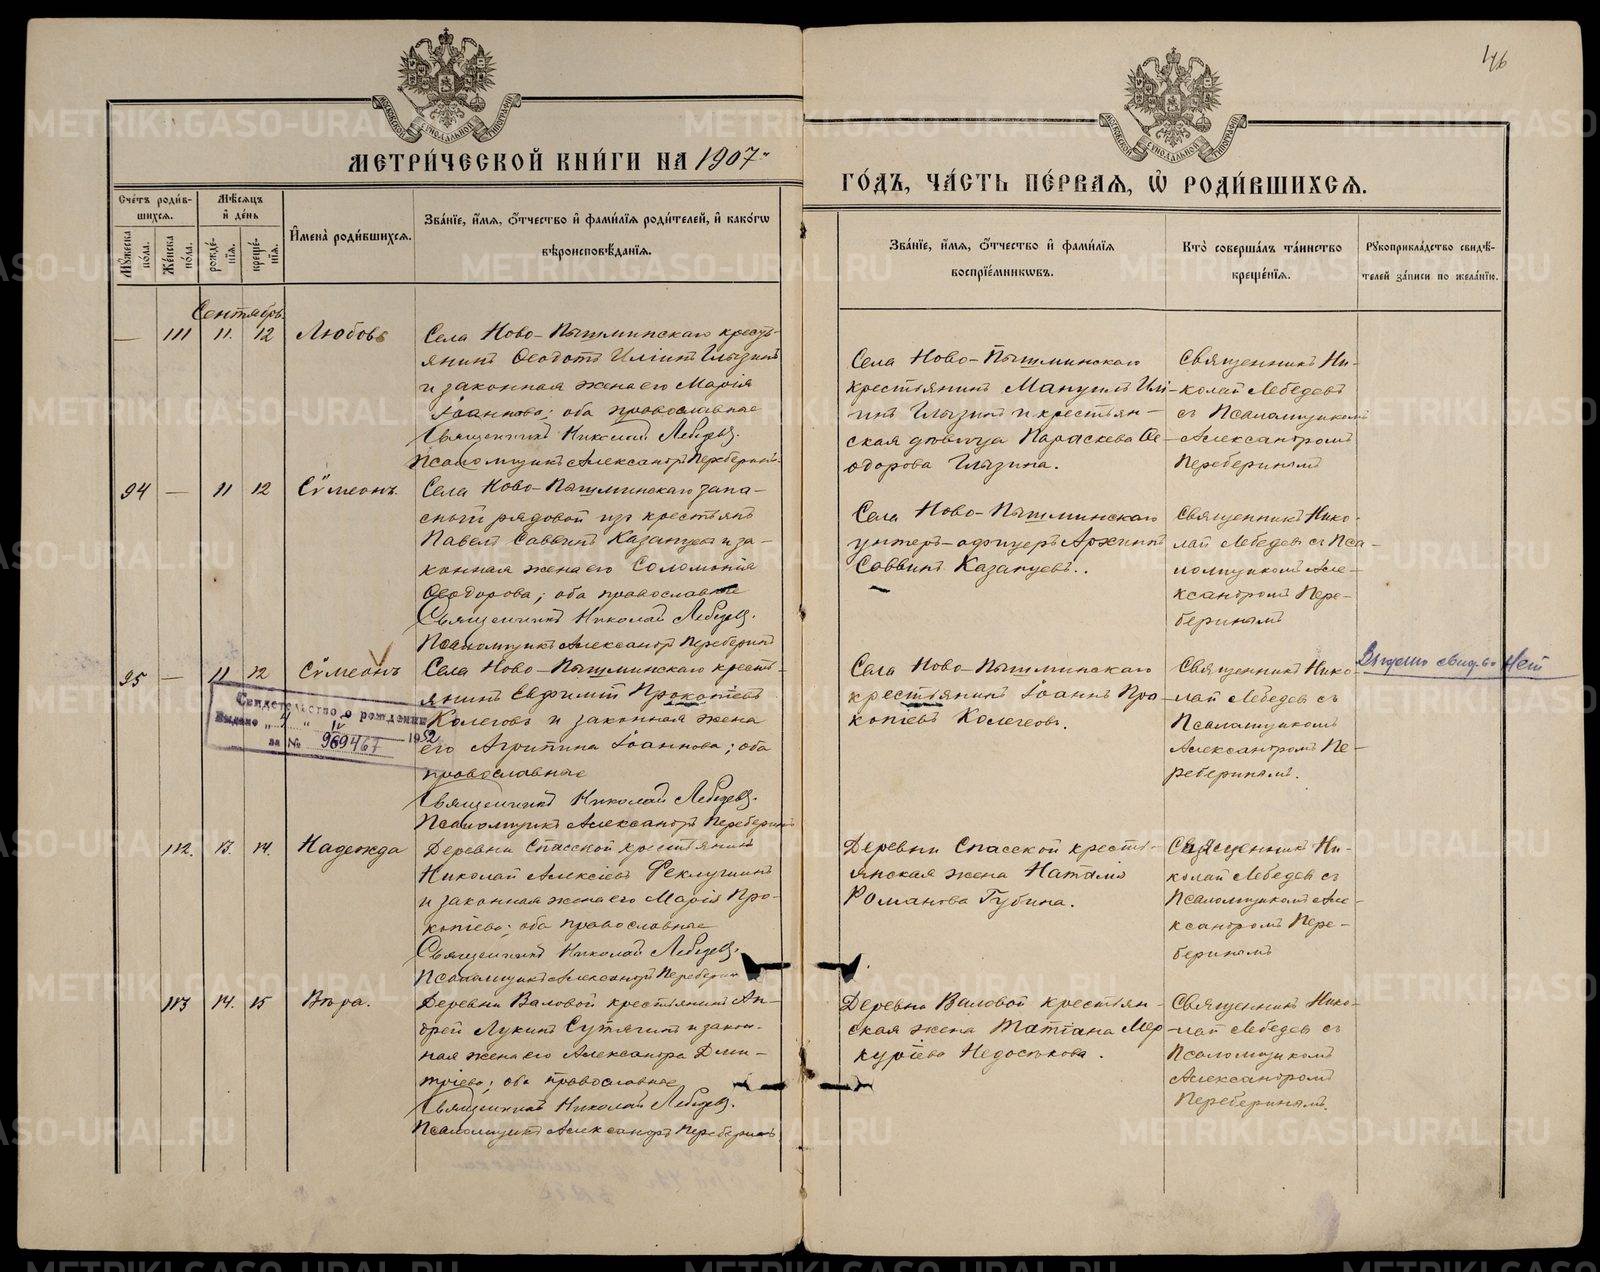 146
МЕТРИ́ЧЕСКОЙ КНИ́ГИ НА 1907
ГО́ДЪ, ЧА́СТЬ ПЕ́РВАЯ, Ѡ РОДИ́ВШИХСЯ.
Сче́тъ роди́в-
шихся.
Мѣ́сяцъ
и҆ де́нь
Мꙋ́жеска по́ла.
Же́нска по́ла.
рожде́нїя.
креще́нїя.
И҆мена̀ роди́вшихся.
Зва́нїе, и҆́мя, ѻ҆́тчество и҆ фами́лїя роди́телей, и҆ како́гѡ
вѣроисповѣ́данїя.
Зва́нїе, и҆́мя, ѻ҆́тчество и҆ фами́лїя
воспрїе́мникѡвъ.
Кто̀ соверша́лъ та́инство
креще́нїя.
Рꙋкоприкла́дство свидѣ́-
телей за́писи по жела́нїю.
Сентябрь.
— 111 11. 12 Любовь
Села Ново-Пышминскаго кресть-
янинъ Ѳеодотъ Иліинъ Глызинъ
и законная жена его Марія
Іоаннова; оба православные
Священникъ Николай Лебедевъ.
Псаломщикъ Александръ Переберинъ.
Села Ново-Пышминскаго
крестьянинъ Мануилъ Илі-
инъ Глызинъ и крестьян-
ская дѣвица Параскева Ѳе-
одорова Глызина.
Священникъ Ни-
колай Лебедевъ
съ Псаломщикомъ
Александромъ
Переберинымъ
94 — 11 12 Сѵмеонъ.
Села Ново-Пышминскаго запа-
сный рядовой изъ крестьянъ
Павелъ Саввинъ Казанцевъ и за-
конная жена его Соломонія
Ѳеодорова; оба православные
Священникъ Николай Лебедевъ.
Псаломщикъ Александръ Переберинъ
Села Ново-Пышминскаго
унтеръ-офицеръ Архипъ
Саввинъ Казанцевъ.
Священникъ Нико-
лай Лебедевъ съ Пса-
ломщикомъ Але-
ксандромъ Пере-
беринымъ
95 — 11 12 Сѵмеонъ
Села Ново-Пышминскаго кресть-
янинъ Евфимій Прокопіевъ
Колеговъ и законная жена
его Агрипина Іоаннова; оба
православные
Священникъ Николай Лебедевъ.
Псаломщикъ Александръ Переберинъ
Свидетельство о рождении
Выдано „4“ IV 1952
за № 969467
Села Ново-Пышминскаго
крестьянинъ Іоаннъ Про-
копіевъ Колеговъ.
Священникъ Нико-
лай Лебедевъ съ
Псаломщикомъ
Александромъ Пе-
реберинымъ.
112. 13. 14. Надежда
Деревни Спасской крестьянинъ
Николай Алексіевъ Феклушинъ
и законная жена его Марія Про-
копіева; оба православные
Священникъ Николай Лебедевъ.
Псаломщикъ Александръ Переберинъ
Деревни Спасской кресть-
янская жена Наталія
Романова Губина.
Священникъ Ни-
колай Лебедевъ съ
Псаломщикомъ Але-
ксандромъ Пере-
беринымъ
113 14. 15 Вѣра.
Деревни Валовой крестьянинъ Ан-
дрей Лукинъ Сутягинъ и закон-
ная жена его Александра Дми-
тріева; оба православные
Священникъ Николай Лебедевъ.
Псаломщикъ Александръ Переберинъ
Деревни Валовой крестьян-
ская жена Татіана Мер-
куріева Недосѣкова.
Священникъ Нико-
лай Лебедевъ съ
Псаломщикомъ
Александромъ
Переберинымъ.
METRIKI.GASO-URAL.RU